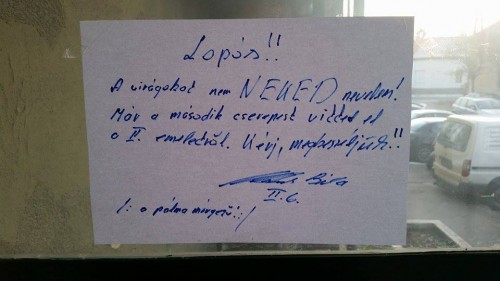 Lopós!!
A virágokat nem NEKED neveltem!
Már a második cserepest vitted el
a II. emeletről. Kérj, megbeszéljük!!
Béla
II. 6.
/: a pálma mérgező! :/